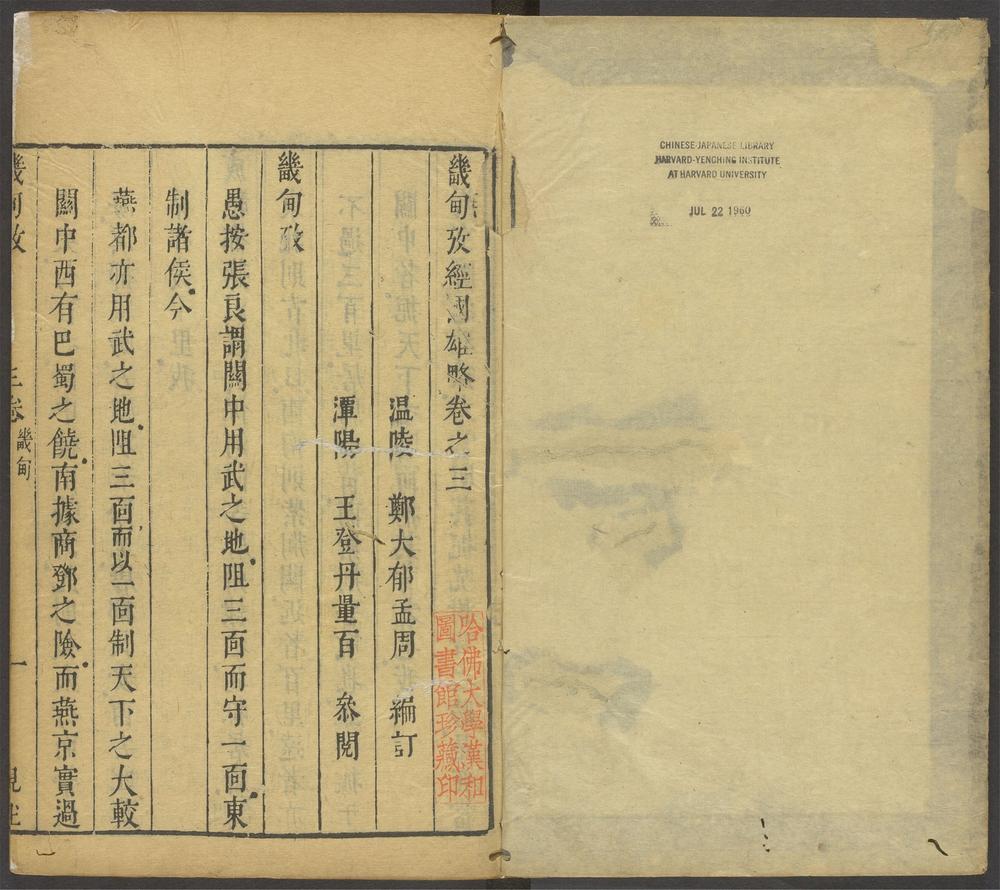 畿甸攷經國雄略卷之三
温陵 鄭大郁孟周 編訂
潭陽 王登丹量百 叅閱
畿甸攷
愚按張良謂關中用武之地阻三面而守一面東
制諸侯今
燕都亦用武之地阻三面而以一面制天下之大較
關中西有巴蜀之饒南據商鄧之險而燕京實過
畿甸攷 三卷 畿甸 一
哈佛大學漢和
圖書館珍藏印
CHINESE-JAPANESE LIBRARY
HARVARD-YENCHING INSTITUTE
AT HARVARD UNIVERSITY
JUL 22 1960